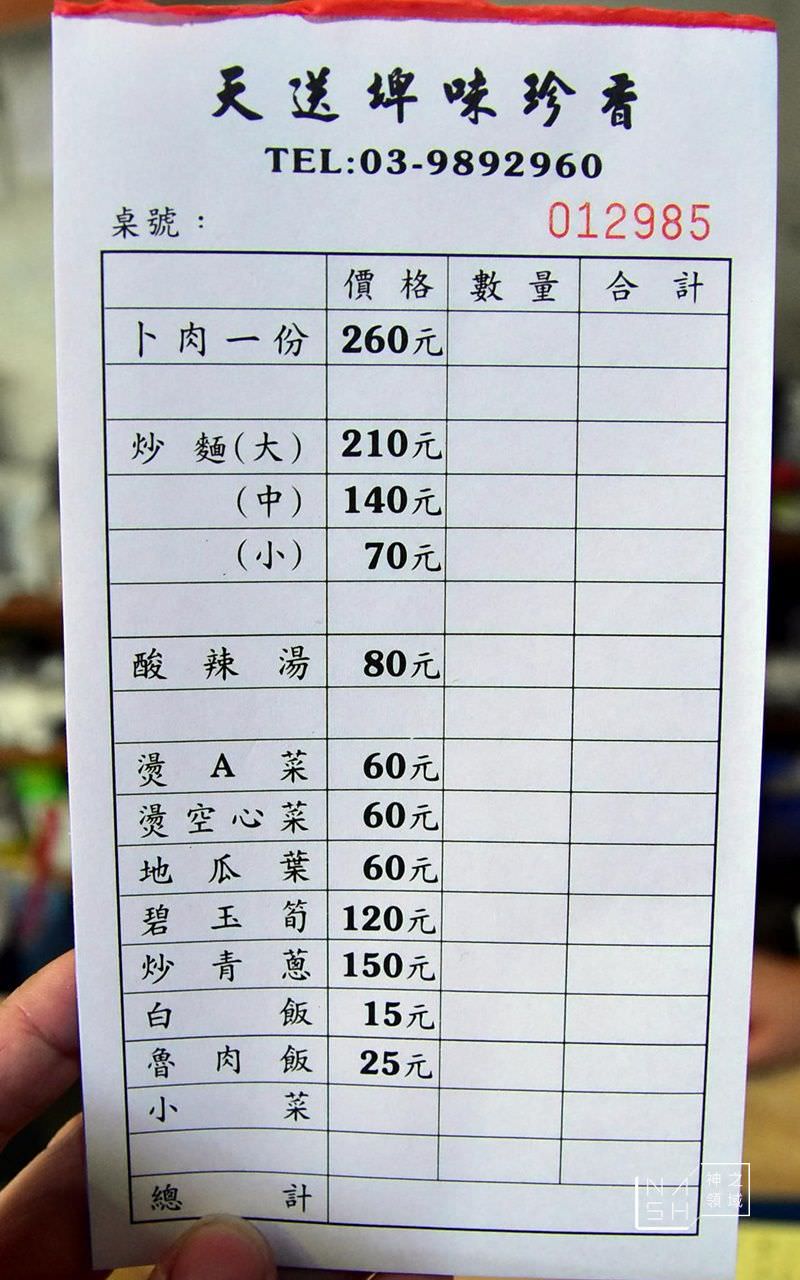 天送埤味珍香
TEL:03-9892960
桌號：
012985
價格 數量 合計
卜肉一份 260元
炒麵(大) 210元
(中) 140元
(小) 70元
酸辣湯 80元
燙A菜 60元
燙空心菜 60元
地瓜葉 60元
碧玉筍 120元
炒青蔥 150元
白飯 15元
魯肉飯 25元
小菜
總計
NASH 神之領域